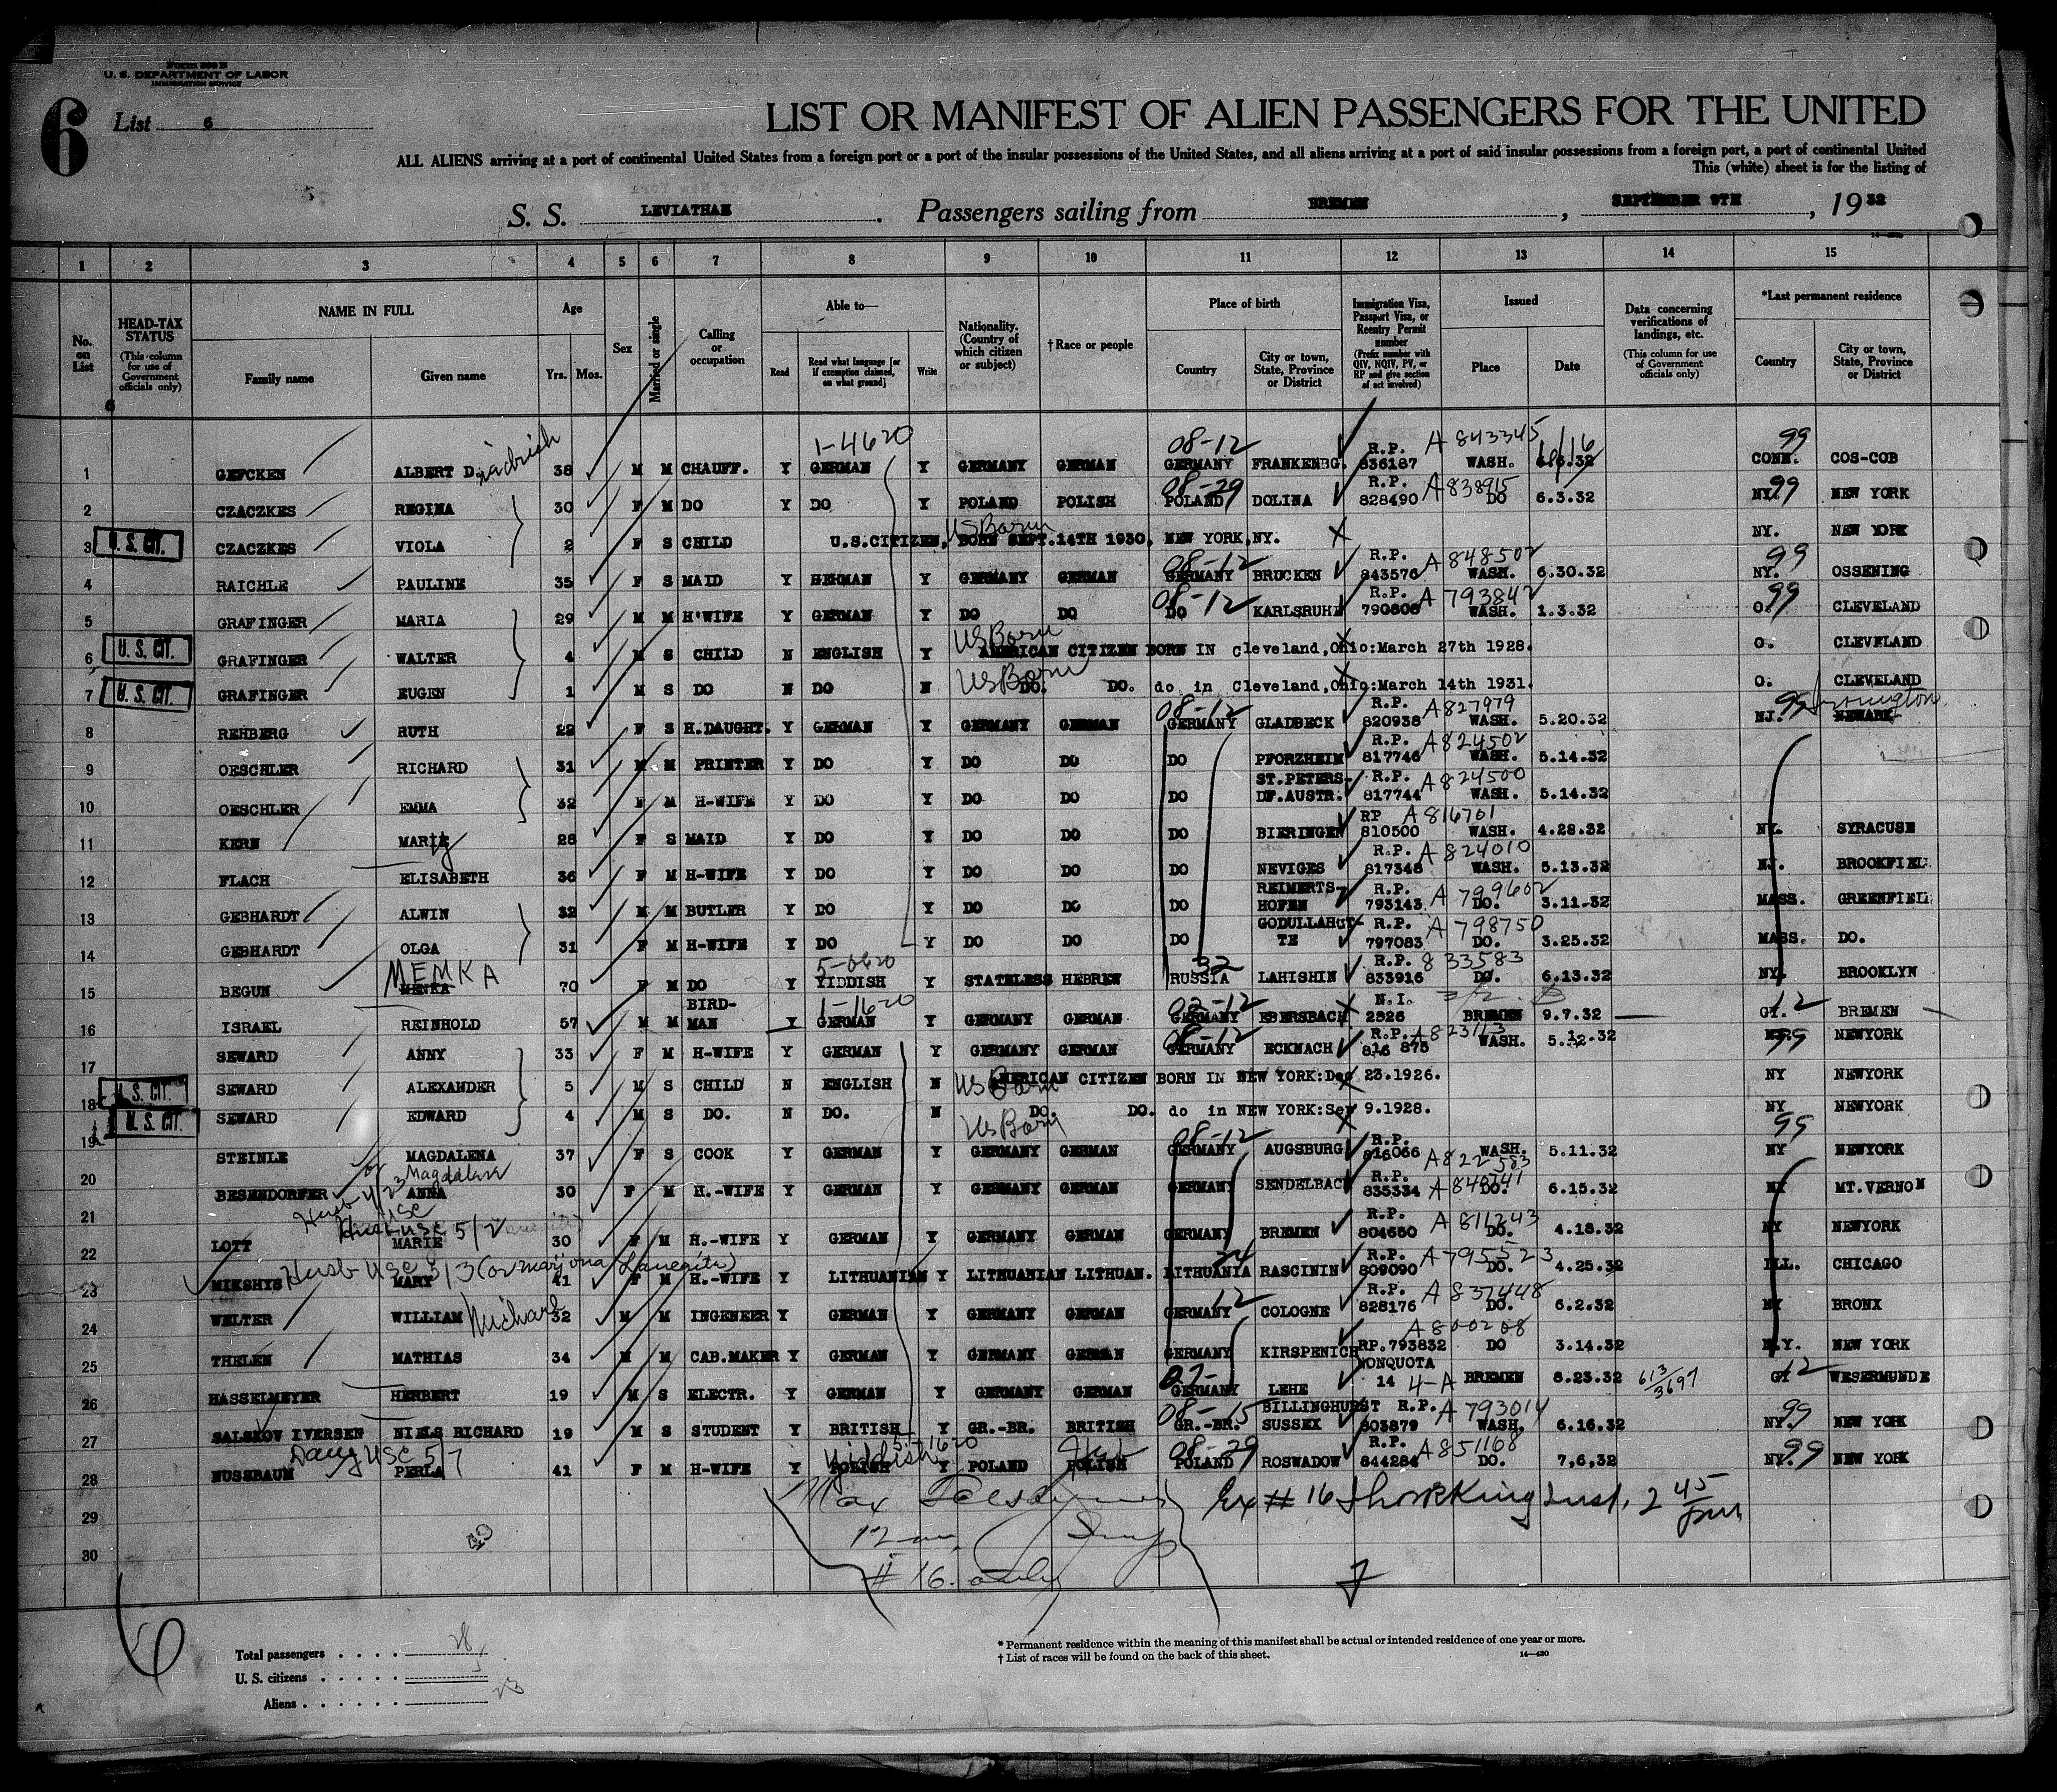 Form 500 B
U. S. DEPARTMENT OF LABOR
IMMIGRATION SERVICE
6
List 6
LIST OR MANIFEST OF ALIEN PASSENGERS FOR THE UNITED
ALL ALIENS arriving at a port of continental United States from a foreign port or a port of the insular possessions of the United States, and all aliens arriving at a port of said insular possessions from a foreign port, a port of continental United
This (white) sheet is for the listing of
S. S. LEVIATHAN. Passengers sailing from BREMEN, SEPTEMBER 9TH, 1932
1 2 3 4 5 6 7 8 9 10 11 12 13 14 15
No. on List
HEAD-TAX STATUS (This column for use of Government officials only)
NAME IN FULL Family name Given name
Age Yrs. Mos.
Sex
Married or single
Calling or occupation
Able to— Read Read what language [or if exemption claimed, on what ground] Write
Nationality. (Country of which citizen or subject)
†Race or people
Place of birth Country City or town, State, Province or District
Immigration Visa, Passport Visa, or Reentry Permit number (Prefix number with QIV, NQIV, PV, or RP and give section of act involved)
Issued Place Date
Data concerning verifications of landings, etc. (This column for use of Government officials only)
*Last permanent residence Country City or town, State, Province or District
1-4620 08-12 A 843345 99
1 GEFCKEN ALBERT D. 38 M M CHAUFF. Y GERMAN Y GERMANY GERMAN GERMANY FRANKENBG. R.P. 836187 WASH. CONN. COS-COB
08-29 A838915 99
2 CZACZKES REGINA 30 F M DO Y DO Y POLAND POLISH POLAND DOLINA R.P. 828490 DO 6.3.32 NY. NEW YORK
US Born
3 U. S. CIT. CZACZKES VIOLA 2 F S CHILD U.S.CITIZEN, BORN SEPT.14TH 1930, NEW YORK,NY. NY. NEW YORK
08-12 A848502 99
4 RAICHLE PAULINE 35 F S MAID Y GERMAN Y GERMANY GERMAN GERMANY BRUCKEN R.P. 843576 WASH. 6.30.32 NY. OSSENING
08-12 A793842 99
5 GRAFINGER MARIA 29 M M H'WIFE Y GERMAN Y DO DO DO KARLSRUHE R.P. 790808 WASH. 1.3.32 O. CLEVELAND
US Born
6 U. S. CIT. GRAFINGER WALTER 4 M S CHILD N ENGLISH Y AMERICAN CITIZEN BORN IN Cleveland,Ohio:March 27th 1928. O. CLEVELAND
US Born
7 U. S. CIT. GRAFINGER EUGEN 1 M S DO N DO N DO. DO. do in Cleveland,Ohio:March 14th 1931. O. CLEVELAND
08-12 A827979 99 Irvington
8 REHBERG RUTH 22 F S H.DAUGHT. Y GERMAN Y GERMANY GERMAN GERMANY GLADBECK R.P. 820938 WASH. 5.20.32 NJ. NEWARK
A824502
9 OESCHLER RICHARD 31 M M PRINTER Y DO Y DO DO DO PFORZHEIM R.P. 817746 WASH. 5.14.32
A824500
10 OESCHLER EMMA 32 F M H-WIFE Y DO Y DO DO DO ST.PETERS-DF.AUSTR. R.P. 817744 WASH. 5.14.32
A816701
11 KERN MARIE 28 F S MAID Y DO Y DO DO DO BIERINGEN RP 810500 WASH. 4.28.32 NY. SYRACUSE
A824010
12 FLACH ELISABETH 36 F M H-WIFE Y DO Y DO DO DO NEVIGES R.P. 817348 WASH. 5.13.32 NJ. BROOKFIEL.
A799602
13 GEBHARDT ALWIN 32 M M BUTLER Y DO Y DO DO DO REIMERTS-HOFEN R.P. 793143 DO. 3.11.32 MASS. GREENFIELD
A798750
14 GEBHARDT OLGA 31 F M H-WIFE Y DO Y DO DO DO GODULLAHUT-TE R.P. 797083 DO. 3.25.32 MASS. DO.
MEMKA 5-0620 32 833583
15 BEGUN MENKA 70 F M DO Y YIDDISH Y STATELESS HEBREW RUSSIA LAHISHIN R.P. 833916 DO. 6.13.32 NY. BROOKLYN
1-1620 02-12 12
16 ISRAEL REINHOLD 57 M M BIRD-MAN Y GERMAN Y GERMANY GERMAN GERMANY EBERSBACH N.I. 2826 BREMEN 9.7.32 GY. BREMEN
08-12 A823113 99
17 SEWARD ANNY 33 F M H-WIFE Y GERMAN Y GERMANY GERMAN GERMANY ECKNACH R.P. 816 875 WASH. 5.12.32 NEWYORK
US Born
18 U. S. CIT. SEWARD ALEXANDER 5 M S CHILD N ENGLISH N AMERICAN CITIZEN BORN IN NEW YORK:Dec 23.1926. NY NEWYORK
US Born
19 U. S. CIT. SEWARD EDWARD 4 M S DO. N DO. N DO. DO. do in NEW YORK:Sep 9.1928. NY NEWYORK
08-12 A822583 99
20 STEINLE MAGDALENA 37 F S COOK Y GERMAN Y GERMANY GERMAN GERMANY AUGSBURG R.P. 816066 WASH. 5.11.32 NY NEWYORK
or Magdalena Husb 4/23 USC A840541
21 BESENDORFER ANNA 30 F M H.-WIFE Y GERMAN Y GERMANY GERMAN GERMANY SENDELBACH R.P. 835334 DO. 6.15.32 NY MT.VERNON
Husb USC 5/2 A811243
22 LOTT MARIE 30 F M H.-WIFE Y GERMAN Y GERMANY GERMAN GERMANY BREMEN R.P. 804650 DO. 4.18.32 NY NEWYORK
Husb USC 8/3 (or Marijona 24 A795523
23 MIKSHYS MARY 41 F M H.-WIFE Y LITHUANIAN Y LITHUANIAN LITHUAN. LITHUANIA RASCININ R.P. 809090 DO. 4.25.32 ILL. CHICAGO
Michael 12 A837448
24 WELTER WILLIAM 32 M M INGENEER Y GERMAN Y GERMANY GERMAN GERMANY COLOGNE R.P. 828176 DO. 6.2.32 NY BRONX
A800208
25 THELEN MATHIAS 34 M M CAB.MAKER Y GERMAN Y GERMANY GERMAN GERMANY KIRSPENICH RP.793832 DO 3.14.32 N.Y. NEW YORK
02- 4-A 613/3697 12
26 HASSELMEYER HERBERT 19 M S ELECTR. Y GERMAN Y GERMANY GERMAN GERMANY LEHE NONQUOTA 14 BREMEN 8.23.32 GY WESERMUNDE
08-15 A793014 99
27 SALSKOV IVERSEN NIELS RICHARD 19 M S STUDENT Y BRITISH Y GR.-BR. BRITISH GR.-BR. BILLINGHURST SUSSEX R.P. 803879 WASH. 6.16.32 NY. NEW YORK
Daug USC 5/7 Yiddish 1620 08-29 A851168 99
28 NUSSBAUM PERLA 41 F M H-WIFE Y POLISH Y POLAND POLISH POLAND ROSWADOW R.P. 844284 DO. 7,6,32 NY. NEW YORK
29 Max Ex # 16 2 45
30 # 16. only
6
Total passengers . . . . 28
U. S. citizens . . . . . 5
Aliens . . . . . . 23
* Permanent residence within the meaning of this manifest shall be actual or intended residence of one year or more.
† List of races will be found on the back of this sheet.
14—430